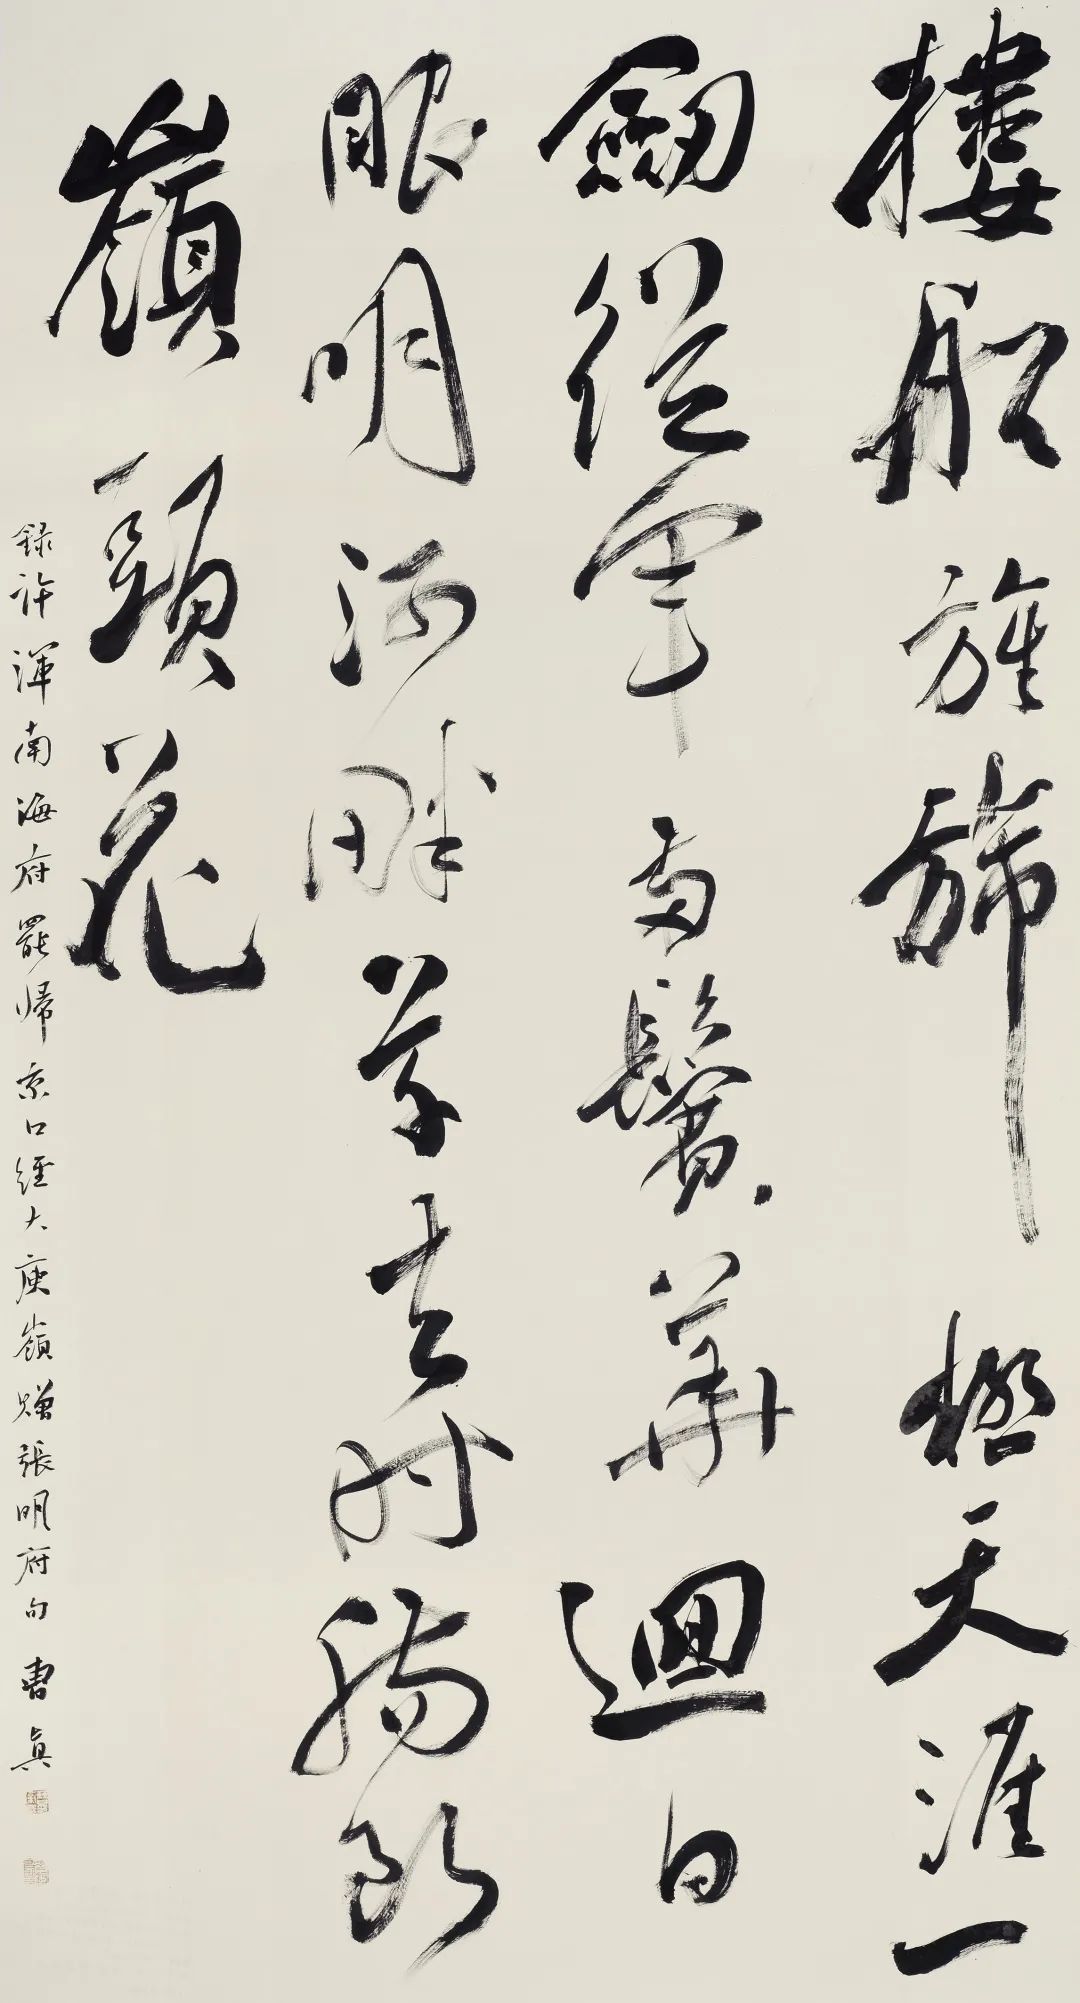 樓船旌旆極天涯一
劒從軍兩鬢華迴日
眼明河畔草去時腸斷
嶺頭花
錄許渾南海府罷帰京口經大庾嶺贈張明府句 曹真